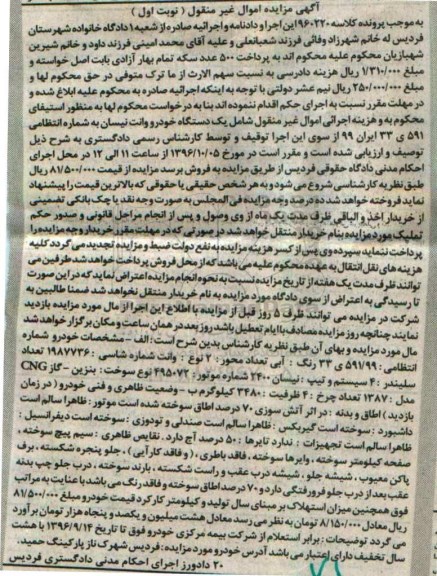 آگهی مزایده اموال غیر منقول ( نوبت اول )
به موجب پرونده کلاسه ۹۶۰۲۲۰ این اجرا و دادنامه و اجرائیه صادره از شعبه ۱ دادگاه خانواده شهرستان
فردیس له خانم شهرزاد وفائی فرزند شعبانعلی و علیه آقای محمد امینی فرزند داود و خانم شیرین
شهبازیان محکوم علیه محکوم اند به پرداخت ۵۰۰ عدد سکه تمام بهار آزادی بابت اصل خواسته و
مبلغ ۱/۳۱۰/۰۰۰ ریال هزینه دادرسی به نسبت سهم الارث از ما ترک متوفی در حق محکوم لها و
مبلغ ۲۵۰/۰۰۰ ریال نیم عشر دولتی با توجه به اینکه اجرائیه صادره به محکوم علیه ابلاغ شده و
در مهلت مقرر نسبت به اجرای حکم اقدام ننموده اند بنا به درخواست محکوم لها به منظور استیفای
محکوم به و هزینه اجرائی اموال غیر منقول شامل یک دستگاه خودرو وانت نیسان به شماره انتظامی
۵۹۱ ی ۳۳ ایران ۹۹ از سوی این اجرا توقیف و توسط کارشناس رسمی دادگستری به شرح ذیل
توصیف و ارزیابی شده است و مقرر است در مورخ ۱۳۹۶/۱۰/۰۵ از ساعت ۱۱ الی ۱۲ در محل اجرای
احکام مدنی دادگاه حقوقی فردیس از طریق مزایده به فروش برسد مزایده از قیمت ۸۱/۵۰۰/۰۰۰ ریال
طبق نظریه کارشناسی شروع می شود و به هر شخص حقیقی یا حقوقی که بالاترین قیمت را پیشنهاد
نماید فروخته خواهد شد ده درصد وجه مزایده فی المجلس به صورت وجه نقد یا چک بانکی تضمینی
از خریدار اخذ و الباقی ظرف مدت یک ماه از وی وصول و پس از انجام مراحل قانونی و صدور حکم
تملیک مورد مزایده بنام خریدار منتقل خواهد شد در صورتی که در مهلت مقرر خریدار وجه مزایده را
پرداخت ننماید سپرده وی پس از کسر هزینه مزایده به نفع دولت ضبط و مزایده تجدید می گردد کلیه
هزینه های نقل انتقال به عهده محکوم علیه می باشد که از محل فروش پرداخت خواهد شد طرفین می
توانند ظرف مدت یک هفته از تاریخ مزایده نسبت به نحوه انجام مزایده اعتراض نماید که در این صورت
تا رسیدگی به اعتراض از سوی دادگاه مورد مزایده به نام خریدار منتقل نخواهد شد ضمنا طالبین به
شرکت در مزایده می توانند ظرف ۵ روز قبل از مزایده با اطلاع این اجرا از مال مورد مزایده بازدید
نمایند چنانچه روز مزایده مصادف با ایام تعطیل باشد روز بعد در همان ساعت و مکان برگزار خواهد شد
مال مورد مزایده و بهای آن طبق نظریه کارشناس بدین شرح است: الف - مشخصات خودرو شماره
انتظامی : ۵۹۱/۹۹ ی ۳۳ رنگ : آبی تعداد محور : ۲ نوع : وانت شماره شاسی : ۱۹۸۷۷۳۶ تعداد
سیلندر : ۴ سیستم و تیپ : نیسان ۲۴۰۰ شماره موتور : ۴۹۵۰۷۲ نوع سوخت : بنزین - گاز CNG
مدل : ۱۳۸۷ تعداد چرخ : ۴ ظرفیت : ۳۴۸۰ کیلوگرم ب - وضعیت ظاهری و فنی خودرو ( در زمان
بازدید ) اطاق و بدنه : در اثر آتش سوزی ۷۰ درصد اطاق سوخته شده است موتور : ظاهرا سالم است
داشبورد : سوخته است گیربکس : ظاهرا سالم است صندلی و تودوزی : سوخته است دیفرانسیل :
ظاهرا سالم است تجهیزات : ندارد تایرها : ۵۰ درصد آج دارد. نقایص ظاهری : سیم پیچ سوخته ،
صفحه کیلومتر سوخته ، وایرها سوخته ، فاقد باطری ، ( و فاقد کارآیی ) ، جلو پنجره شکسته ، برف
پاکن معیوب ، شیشه جلو ، شیشه درب عقب و راست شکسته ، باربند سوخته ، درب جلو چپ بدنه
عقب بعد از درب جلو فرورفتگی دارد و ۷۰ درصد اطاق سوخته و فاقد رنگ می باشد با عنایت به مراتب
فوق همچنین میزان استهلاک بر مبنای سال تولید و کیلومتر کارکرد قیمت خودرو مبلغ ۸۱/۵۰۰/۰۰۰
ریال معادل ۸/۱۵۰/۰۰۰ تومان به نظر می رسد معادل هشت میلیون و یکصد و پنجاه هزار تومان برآورد
می گردد توضیحات : برابر استعلام از شرکت بیمه مرکزی خودرو فوق تا تاریخ ۱۳۹۶/۹/۱۴ با هشت
سال تخفیف دارای اعتبار می باشد آدرس خودرو مورد مزایده : فردیس شهرک ناز پارکینگ حمید.
۲۰ دادورز اجرای احکام مدنی دادگستری فردیس